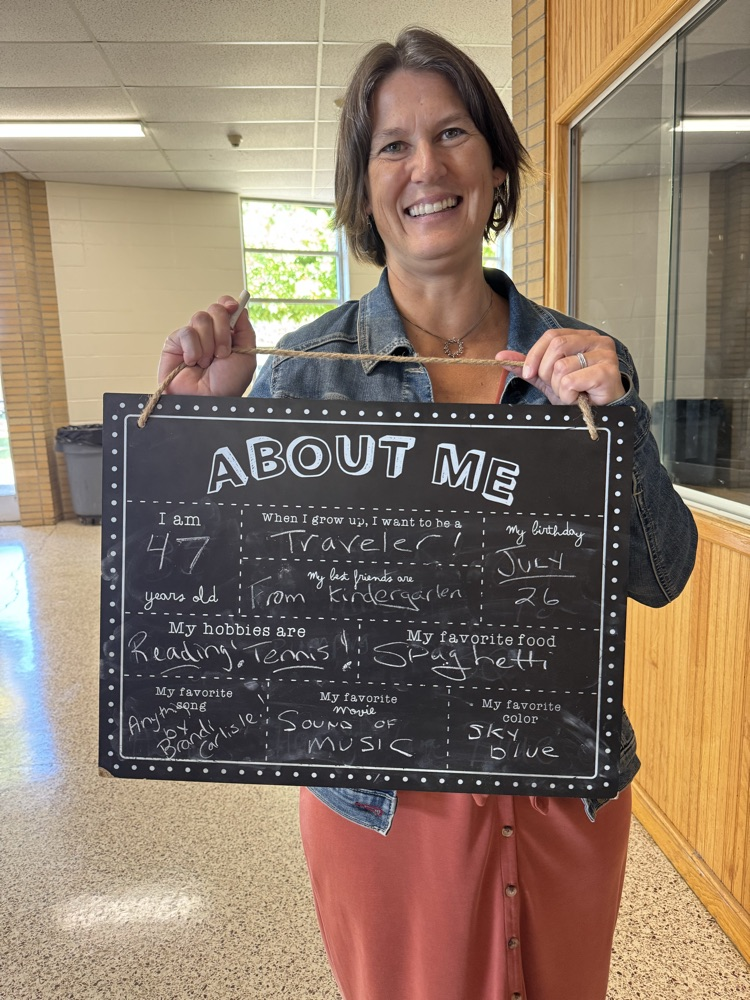 ABOUT ME
I am
47
years old
When I grow up, I want to be a
Traveler!
My best friends are
From kindergarten
My birthday
JULY
26
My hobbies are
Reading! Tennis!
My favorite food
Spaghetti
My favorite
song
Anything
by
Brandi
Carlisle!
My favorite
movie
SOUND OF
MUSIC
My favorite
color
SKY
blue